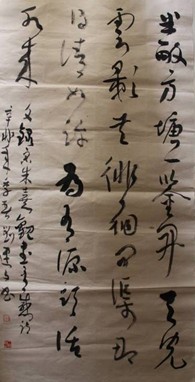 半畝方塘一鑒開天光
雲影共徘徊問渠那
得清如許為有源頭活
水来
錄宋朱熹觀書有感詩
辛卯夏